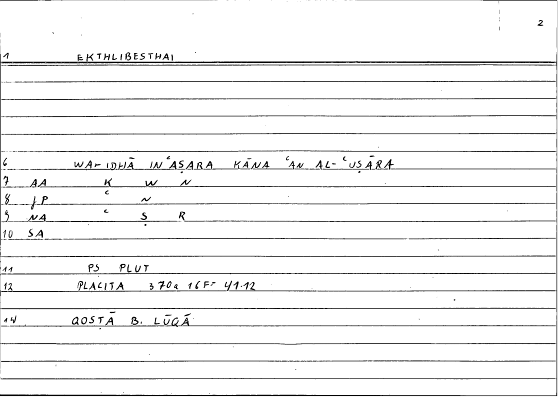 2
1 EKTHLIBESTHAI
6 WA-IDHĀ INʿAṢARA KĀNA ʿAN AL-ʿUṢĀRA
7 AA K W N
8 JP ʿ N
9 NA ʿ Ṣ R
10 SA
11 PS PLUT
12 PLACITA 370a 16F- 41.12
14 QOSṬĀ B. LŪQĀ